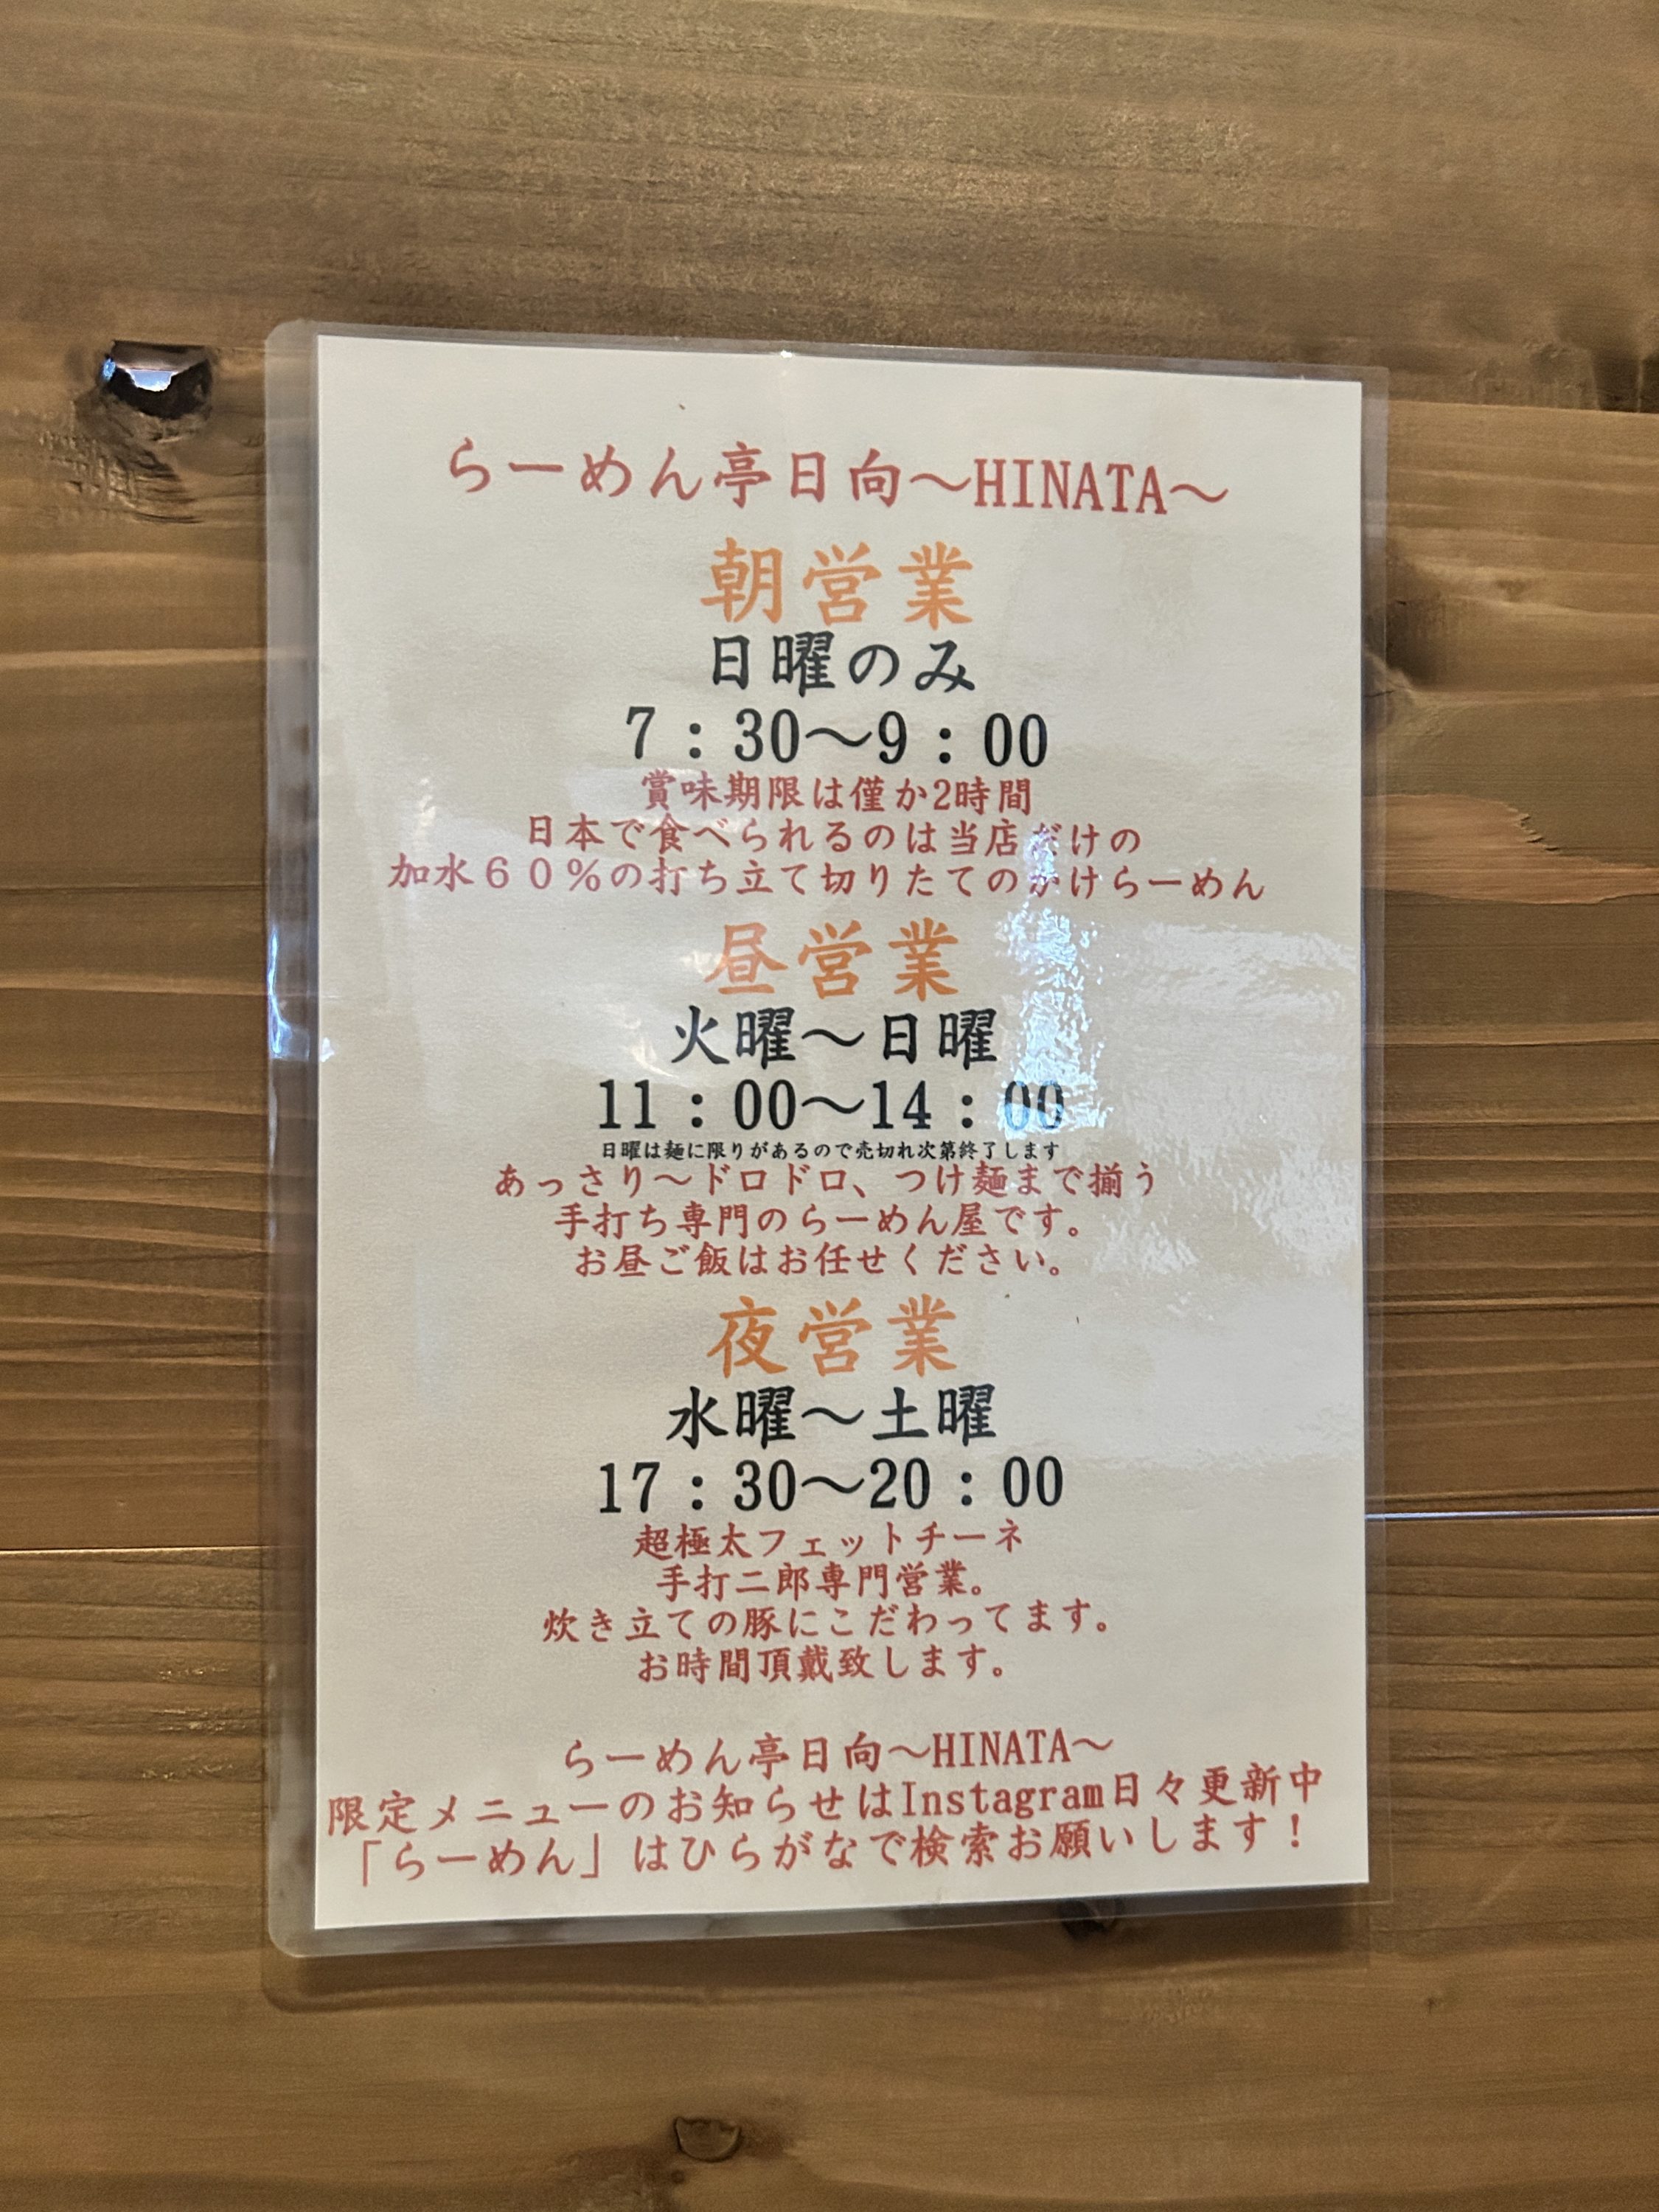 らーめん亭日向～HINATA～
朝営業
日曜のみ
7：30～9：00
賞味期限は僅か2時間
日本で食べられるのは当店だけの
加水６０％の打ち立て切りたてのかけらーめん
昼営業
火曜～日曜
11：00～14：00
日曜は麺に限りがあるので売切れ次第終了します
あっさり～ドロドロ、つけ麺まで揃う
手打ち専門のらーめん屋です。
お昼ご飯はお任せください。
夜営業
水曜～土曜
17：30～20：00
超極太フェットチーネ
手打二郎専門営業。
炊き立ての豚にこだわってます。
お時間頂戴致します。
らーめん亭日向～HINATA～
限定メニューのお知らせはInstagram日々更新中
「らーめん」はひらがなで検索お願いします！